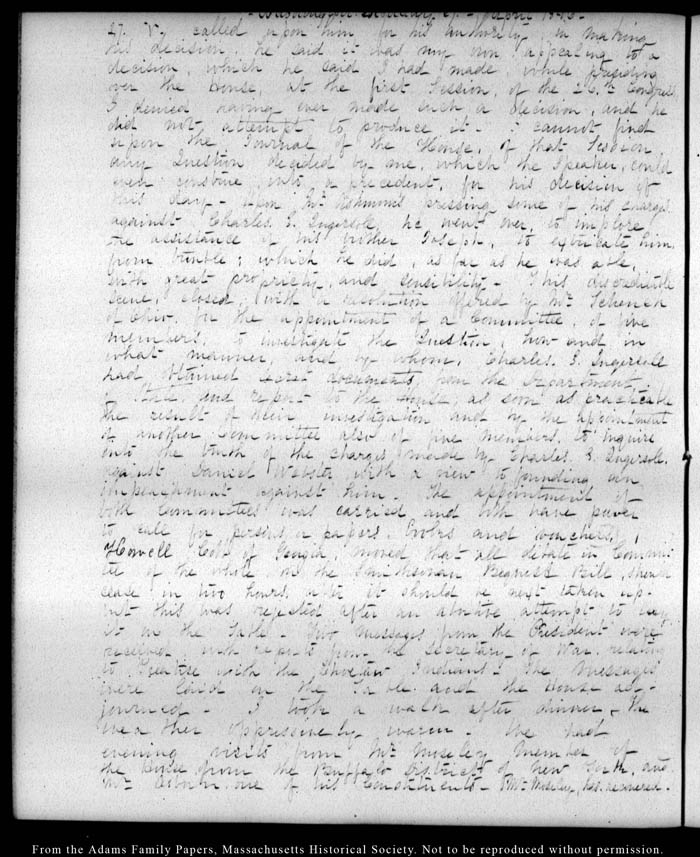 27. V. called upon him for his authority, in making
his decision, he said it was my own, appealing to a
decision, which he said I had made, while presiding
over the House, at the first Session, of the 26th Congress.
I denied having ever made such a decision, and he
did not attempt to produce it. I cannot find
upon the Journal of the House, of that Session
any Question decided by me, which the Speaker, could
even construe into a precedent, for his decision of
this day — Upon Mr Ashmun's pressing some of his charges
against Charles. J. Ingersoll, he went over, to implore
the assistance of his brother Joseph, to extricate him,
from trouble; which he did, as far as he was able,
with great propriety, and sensibility — This discreditable
scene, closed, with a resolution offered by Mr Schenck
of Ohio, for the appointment of a Committee, of five
members, to investigate the Question, how and in
what manner, and by whom, Charles. J. Ingersoll
had obtained secret documents, from the Department
of State, and report to the House, as soon as practicable
the result of their investigation and by the appointment
of another Committee also of five members, to inquire
into the truth of the charges made by Charles. J. Ingersoll.
against Daniel Webster with a view to founding an
impeachment against him. The appointment of
both Committees was carried and both have power
to call for persons, papers, Books and vouchers,
Howell Cobb of Georgia, moved that all debate in Commit-
tee of the whole on the Smithsonian Bequest Bill, should
cease in two hours, after it should be next taken up.
but this was rejected after an abortive attempt to lay
it on the Table — Two messages from the President were
received, with reports from the Secretary of War, relating
to Treaties with the Choctaw Indians — The messages
were laid on the Table and the House ad-
journed — I took a walk after dinner, the
weather oppressively warm — We had
evening visits from Mr Moseley, member of
the House from the Buffalo District of New York, and
Mr one of his Constituents — Mr Moseley, has recovered.
From the Adams Family Papers, Massachusetts Historical Society. Not to be reproduced without permission.